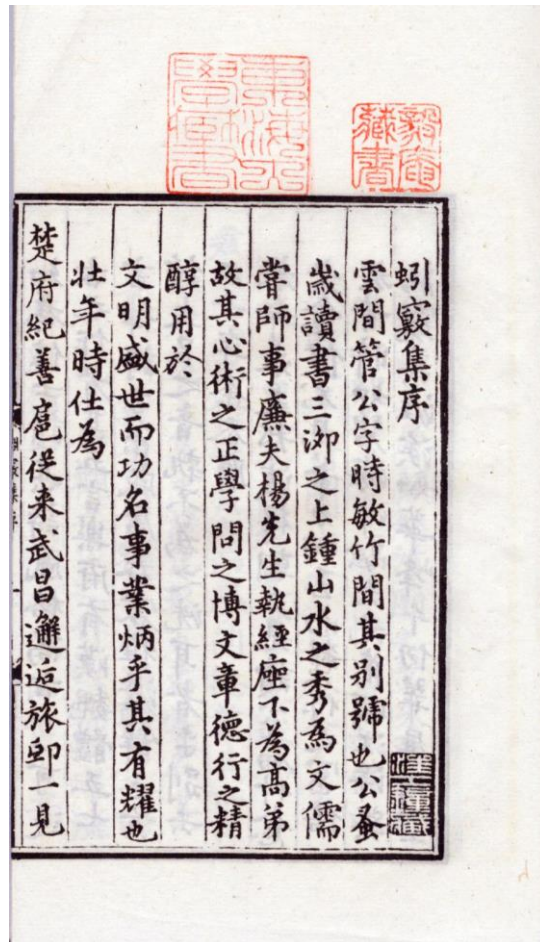 蚓竅集序
雲間管公字時敏竹間其别號也公蚤
歲讀書三泖之上鍾山水之秀為文儒
嘗師事廉夫楊先生執經座下為高弟
故其心術之正學問之博文章德行之精
醇用於
文明盛世而功名事業炳乎其有耀也
壮年時仕為
楚府紀善扈從来武昌邂逅旅邸一見
毅庵
藏書